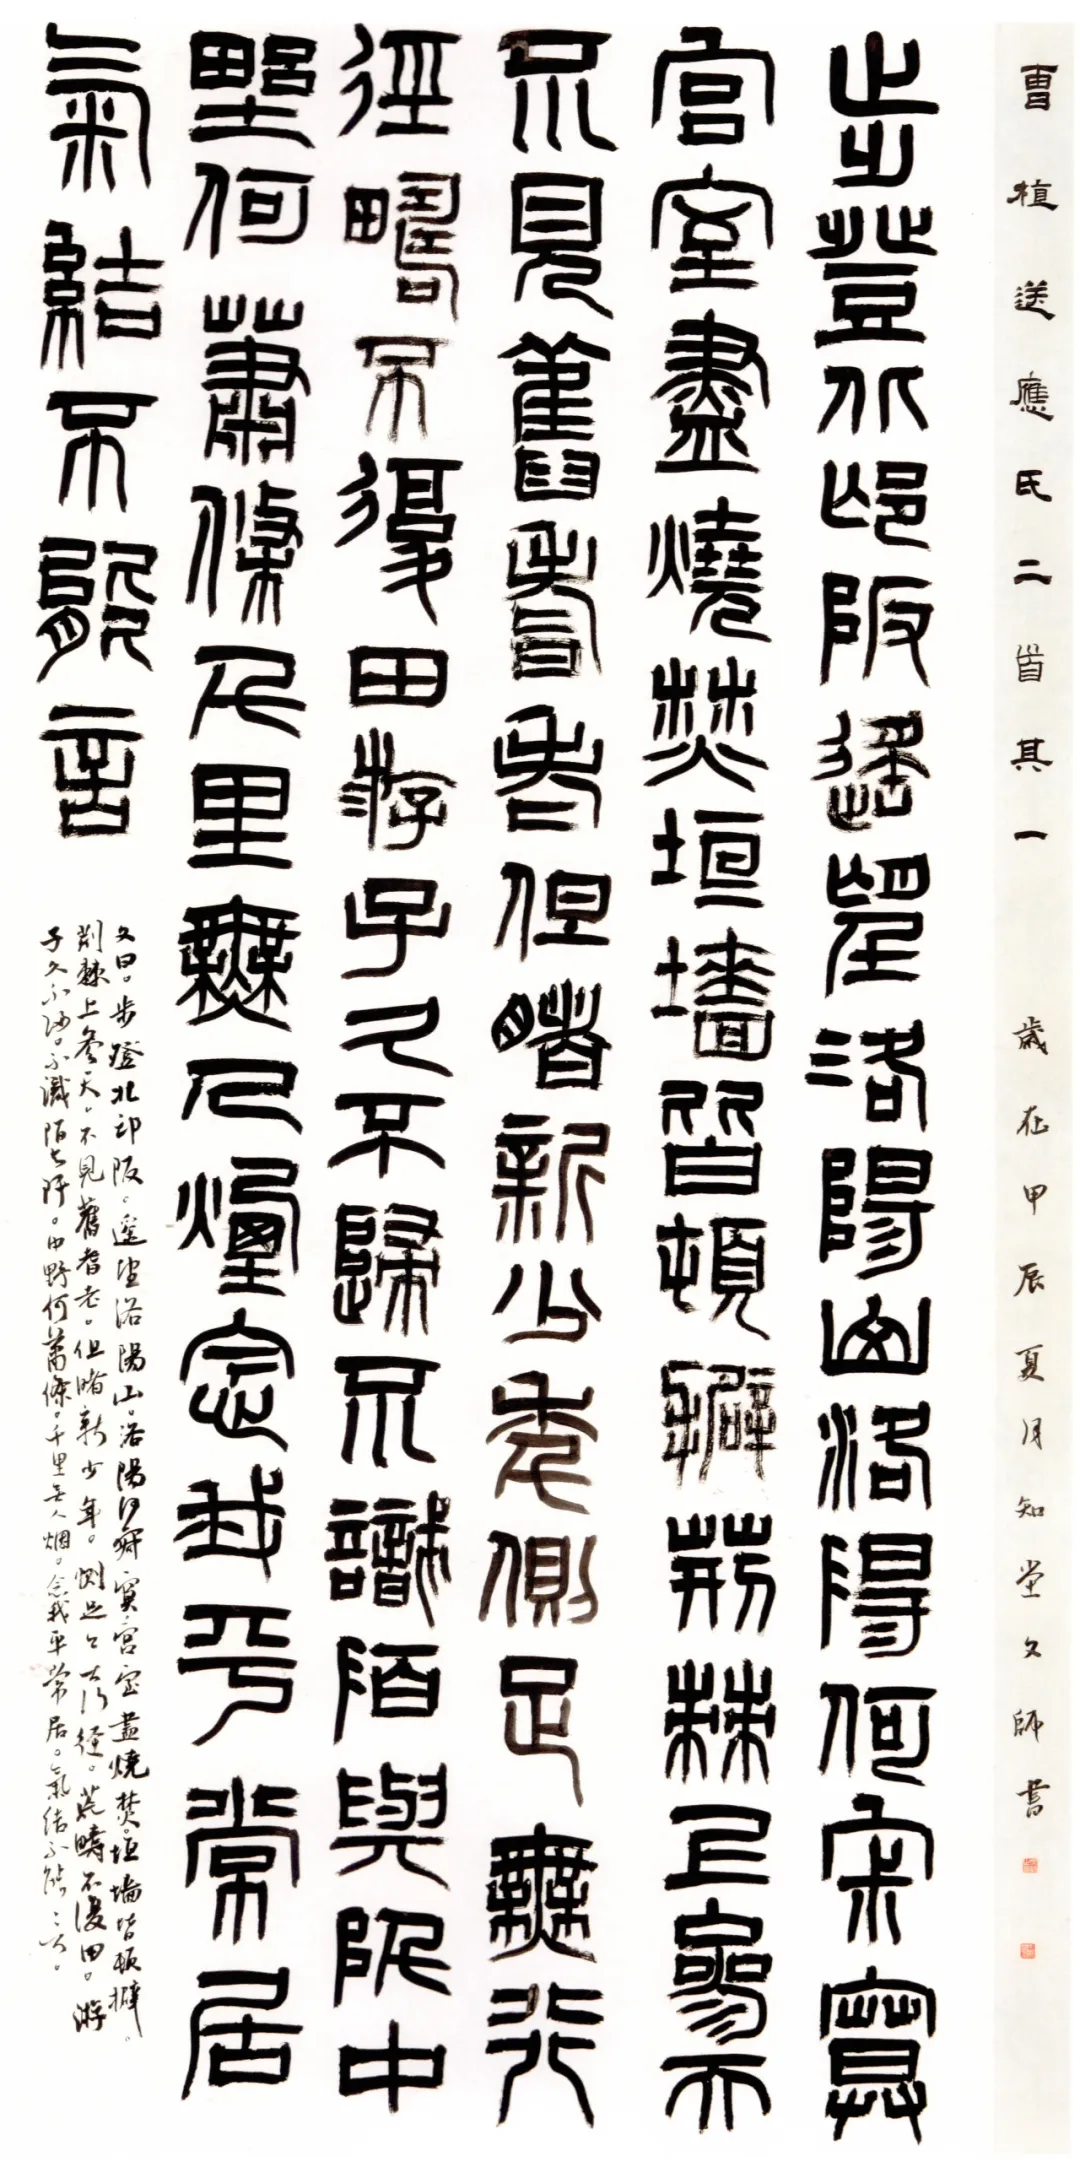 曹植送應氏二首其一 歲在甲辰夏月知堂文師書
步登北邙阪遙望洛陽山洛陽何寂寞
宮室盡燒焚垣墻皆頓擗荊棘上參天
不見舊耆老但睹新少年側足無行
徑疇不復田游子久不歸不識陌與阡中
野何蕭條千里無人煙念我平常居
氣結不能言
文曰。步登北邙阪。遙望洛陽山。洛陽何寂寞宮室盡燒焚。垣墻皆頓擗。
荊棘上參天。不見舊耆老。但睹新少年。側足無行徑。荒疇不復田。游
子久不歸。不識陌與阡。中野何蕭條。千里無人烟。念我平常居。氣結不能言。